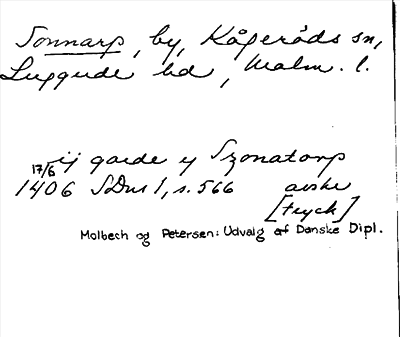 Sonnarp, by, Kågeröds sn,
Luggude hd, Malm. l.
ij garde y Szonatorp
17/6 1406 SDns 1, s. 566 avskr
[tryck]
Molbech og Petersen: Udvalg af Danske Dipl.